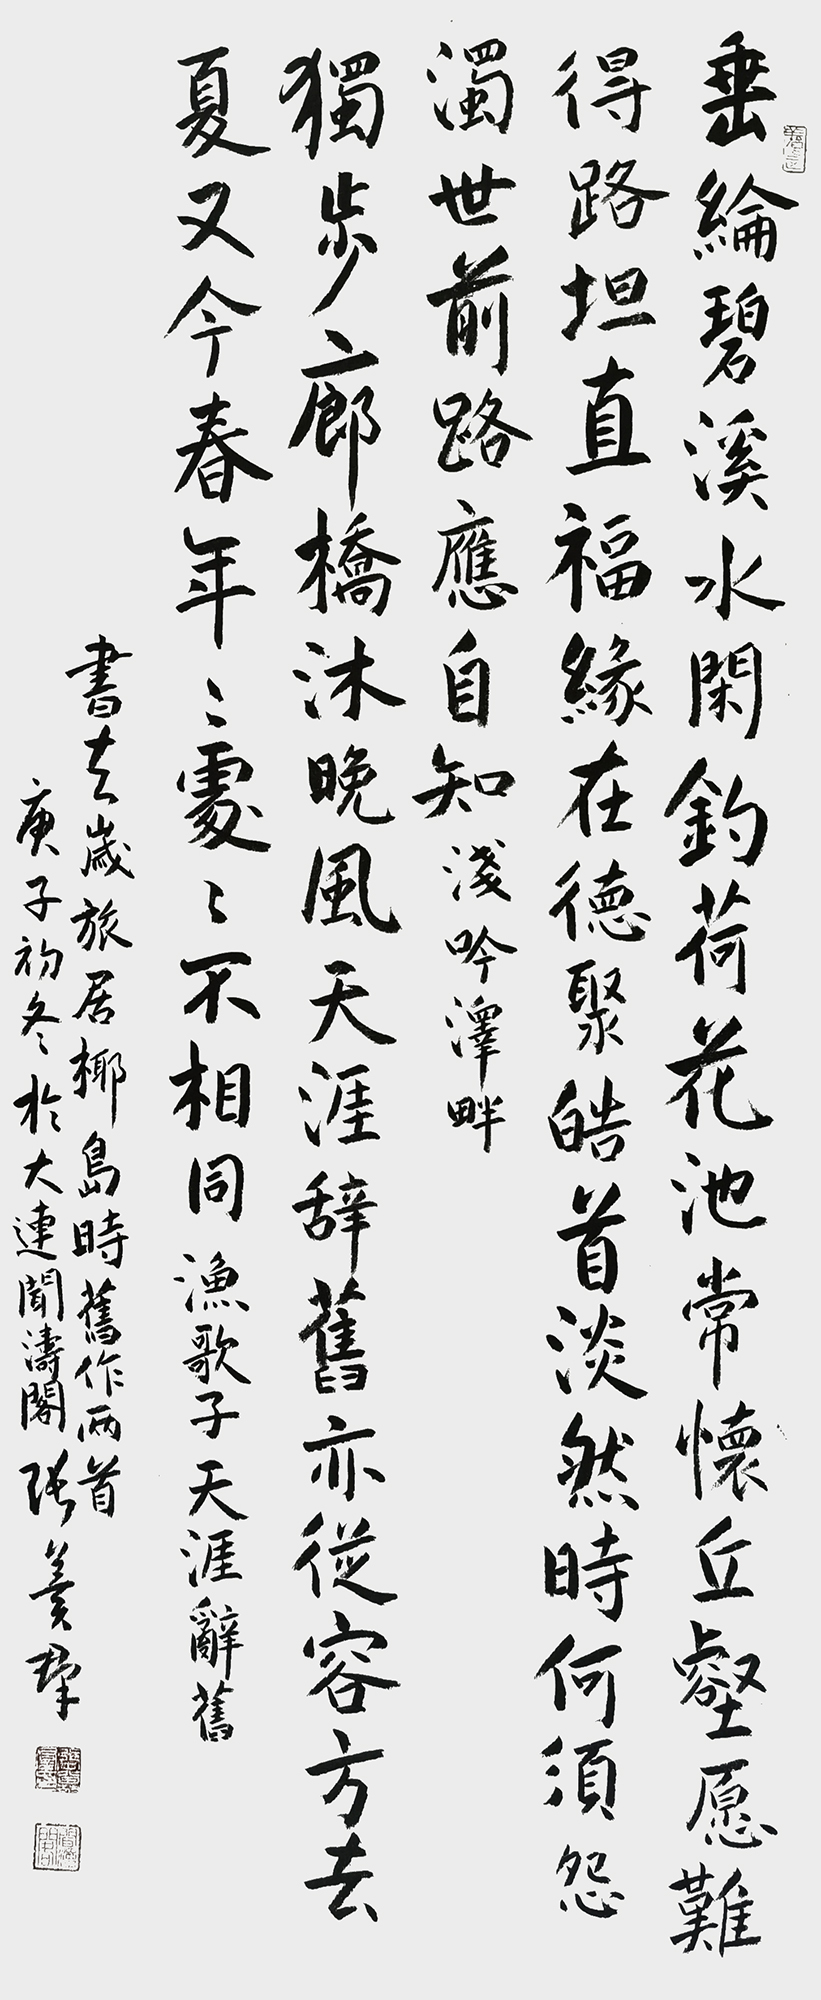 垂綸碧溪水閑釣荷花池常懷丘壑愿難
得路坦直福緣在德聚皓首淡然時何須怨
濁世前路應自知 淺吟澤畔
獨步廊橋沐晚風天涯辞舊亦從容方去
夏又今春年〻處〻不相同 漁歌子天涯辭舊
書去歲旅居椰島時舊作兩首
庚子初冬於大連聞濤閣 張美群